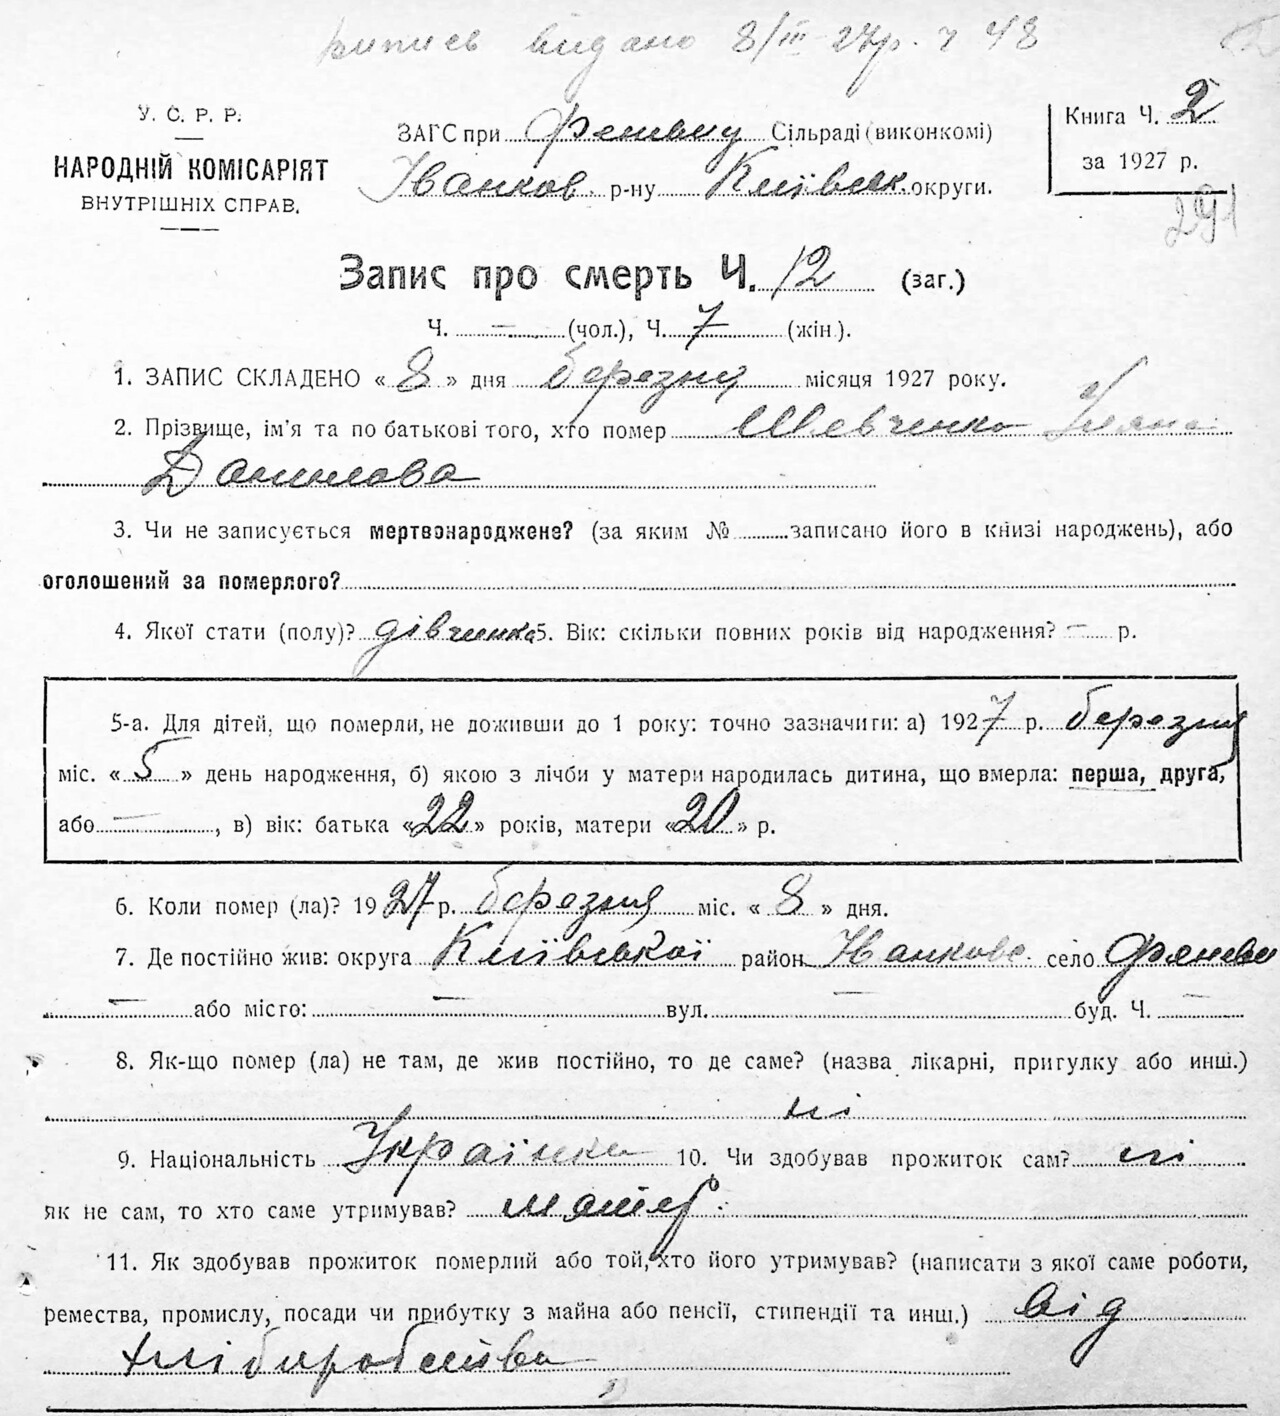 випись видано 8/III 27р. ч 48
У. С. Р. Р.
НАРОДНІЙ КОМІСАРІЯТ
ВНУТРІШНІХ СПРАВ.
ЗАГС при Сільраді (виконкомі)
Іванков. р-ну Київськ. округи.
Книга Ч. 2
за 1927 р.
291
Запис про смерть Ч. 12 (заг.)
Ч. — (чол.), Ч. 7 (жін.).
1. ЗАПИС СКЛАДЕНО « 8 » дня березня місяця 1927 року.
2. Прізвище, ім'я та по батькові того, хто помер Шевченко Уляна
Данилова
3. Чи не записується мертвонароджене? (за яким № записано його в книзі народжень), або
оголошений за померлого?
4. Якої стати (полу)? дівчинка 5. Вік: скільки повних років від народження? — р.
5-а. Для дітей, що померли, не доживши до 1 року: точно зазначити: а) 1927 р. березня
міс. « 5 » день народження, б) якою з лічби у матери народилась дитина, що вмерла: перша, друга,
або —, в) вік: батька «22» років, матери «20» р.
6. Коли помер (ла)? 1927 р. березня міс. « 8 » дня.
7. Де постійно жив: округа Київської район Іванковс. село
— або місто: — вул. — буд. Ч. —
8. Як-що помер (ла) не там, де жив постійно, то де саме? (назва лікарні, пригулку або инші.)
ні
9. Національність Українка 10. Чи здобував прожиток сам? ні
як не сам, то хто саме утримував? матер
11. Як здобував прожиток померлий або той, хто його утримував? (написати з якої саме роботи,
ремества, промислу, посади чи прибутку з майна або пенсії, стипендії та инш.) від
хліборобства